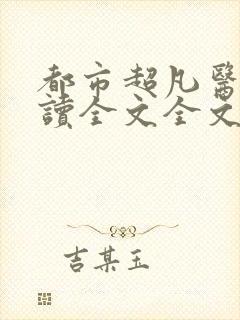 都市超凡醫
讀全文全文
吉某玉